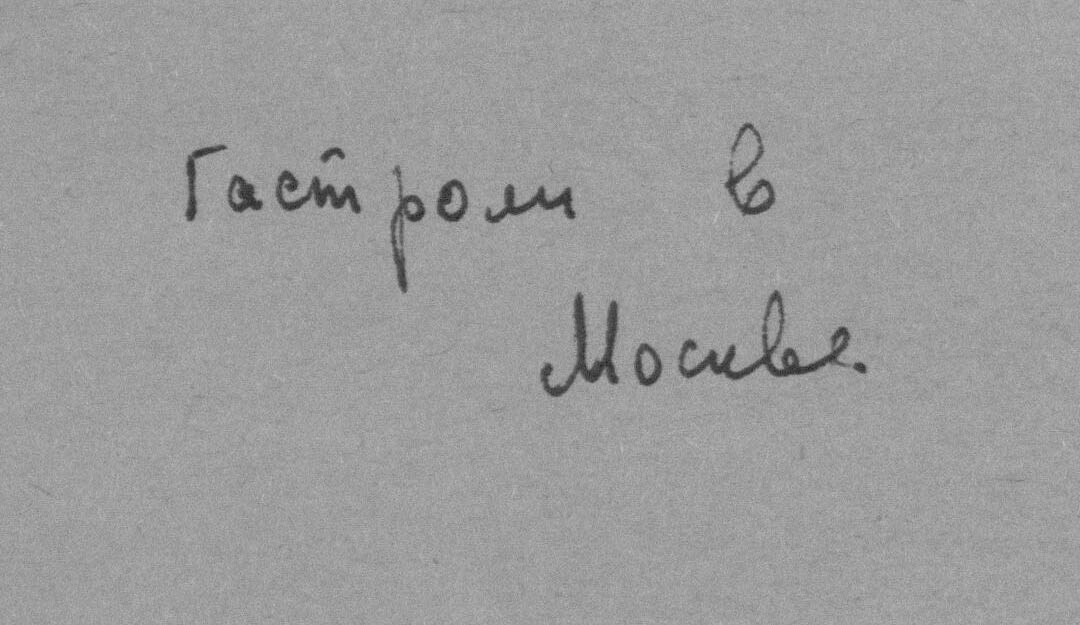 Гастроли в
Москве.